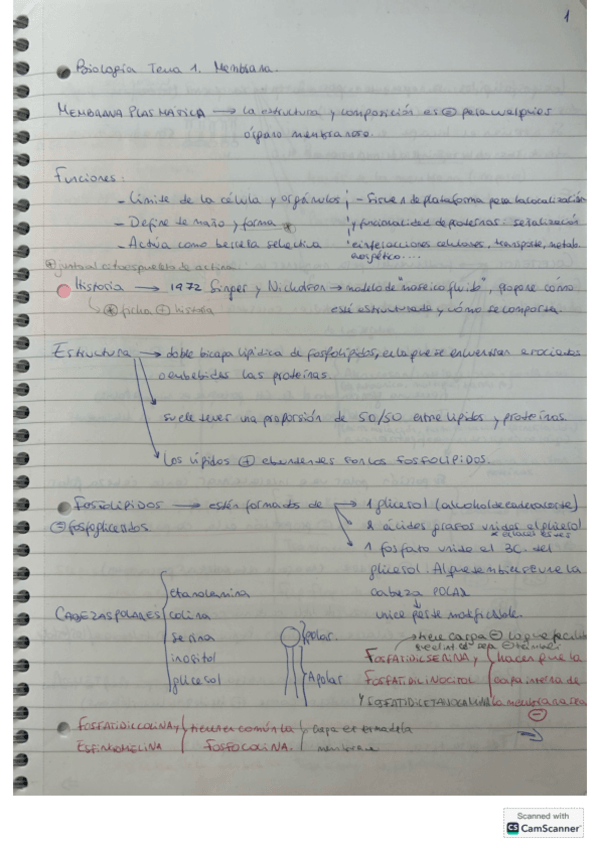 1
Biología Tema 1. Membrana.
MEMBRANA PLASMÁTICA → la estructura y composición es = para cualquier
órgano membranoso.
Funciones:
- Límite de la célula y orgánulos
- Define tamaño y forma *
- Actúa como barrera selectiva
- Sirven de plataforma para la localización
y funcionalidad de proteínas: señalización
e interacciones celulares, transporte, metab.
energético....
* junto al citoesqueleto de actina.
Historia → 1972 Singer y Nicholson → modelo de "mosaico fluido", propone cómo
está estructurada y cómo se comporta.
ficha + historia
Estructura → doble bicapa lipídica de fosfolípidos, en la que se encuentran asociadas
o embebidas las proteínas.
suele tener una proporción de 50/50 entre lípidos y proteínas
Los lípidos + abundantes son los FOSFOLÍPIDOS.
FOSFOLÍPIDOS → están formados de → 1 glicerol (alcohol de)
= fosfoglicéridos
2 ácidos grasos unidos al glicerol
1 fosfato unido al 3C. del
glicerol. Al que también se une la
cabeza POLAR
única parte modificable.
CABEZAS POLARES
etanolamina
colina
serina
inositol
glicerol
Polar.
Apolar
tiene carga ⊖ lo que
FOSFATIDILSERINA, y
FOSFATIDILINOCITOL
Y FOSFATIDILETANOLAMINA
hacen que la
capa interna de
la membrana sea
⊖
FOSFATIDILCOLINA y
ESFINGOMIELINA
tienen común la
FOSFOCOLINA.
capa externa de la
membrana
Scanned with
CS CamScanner